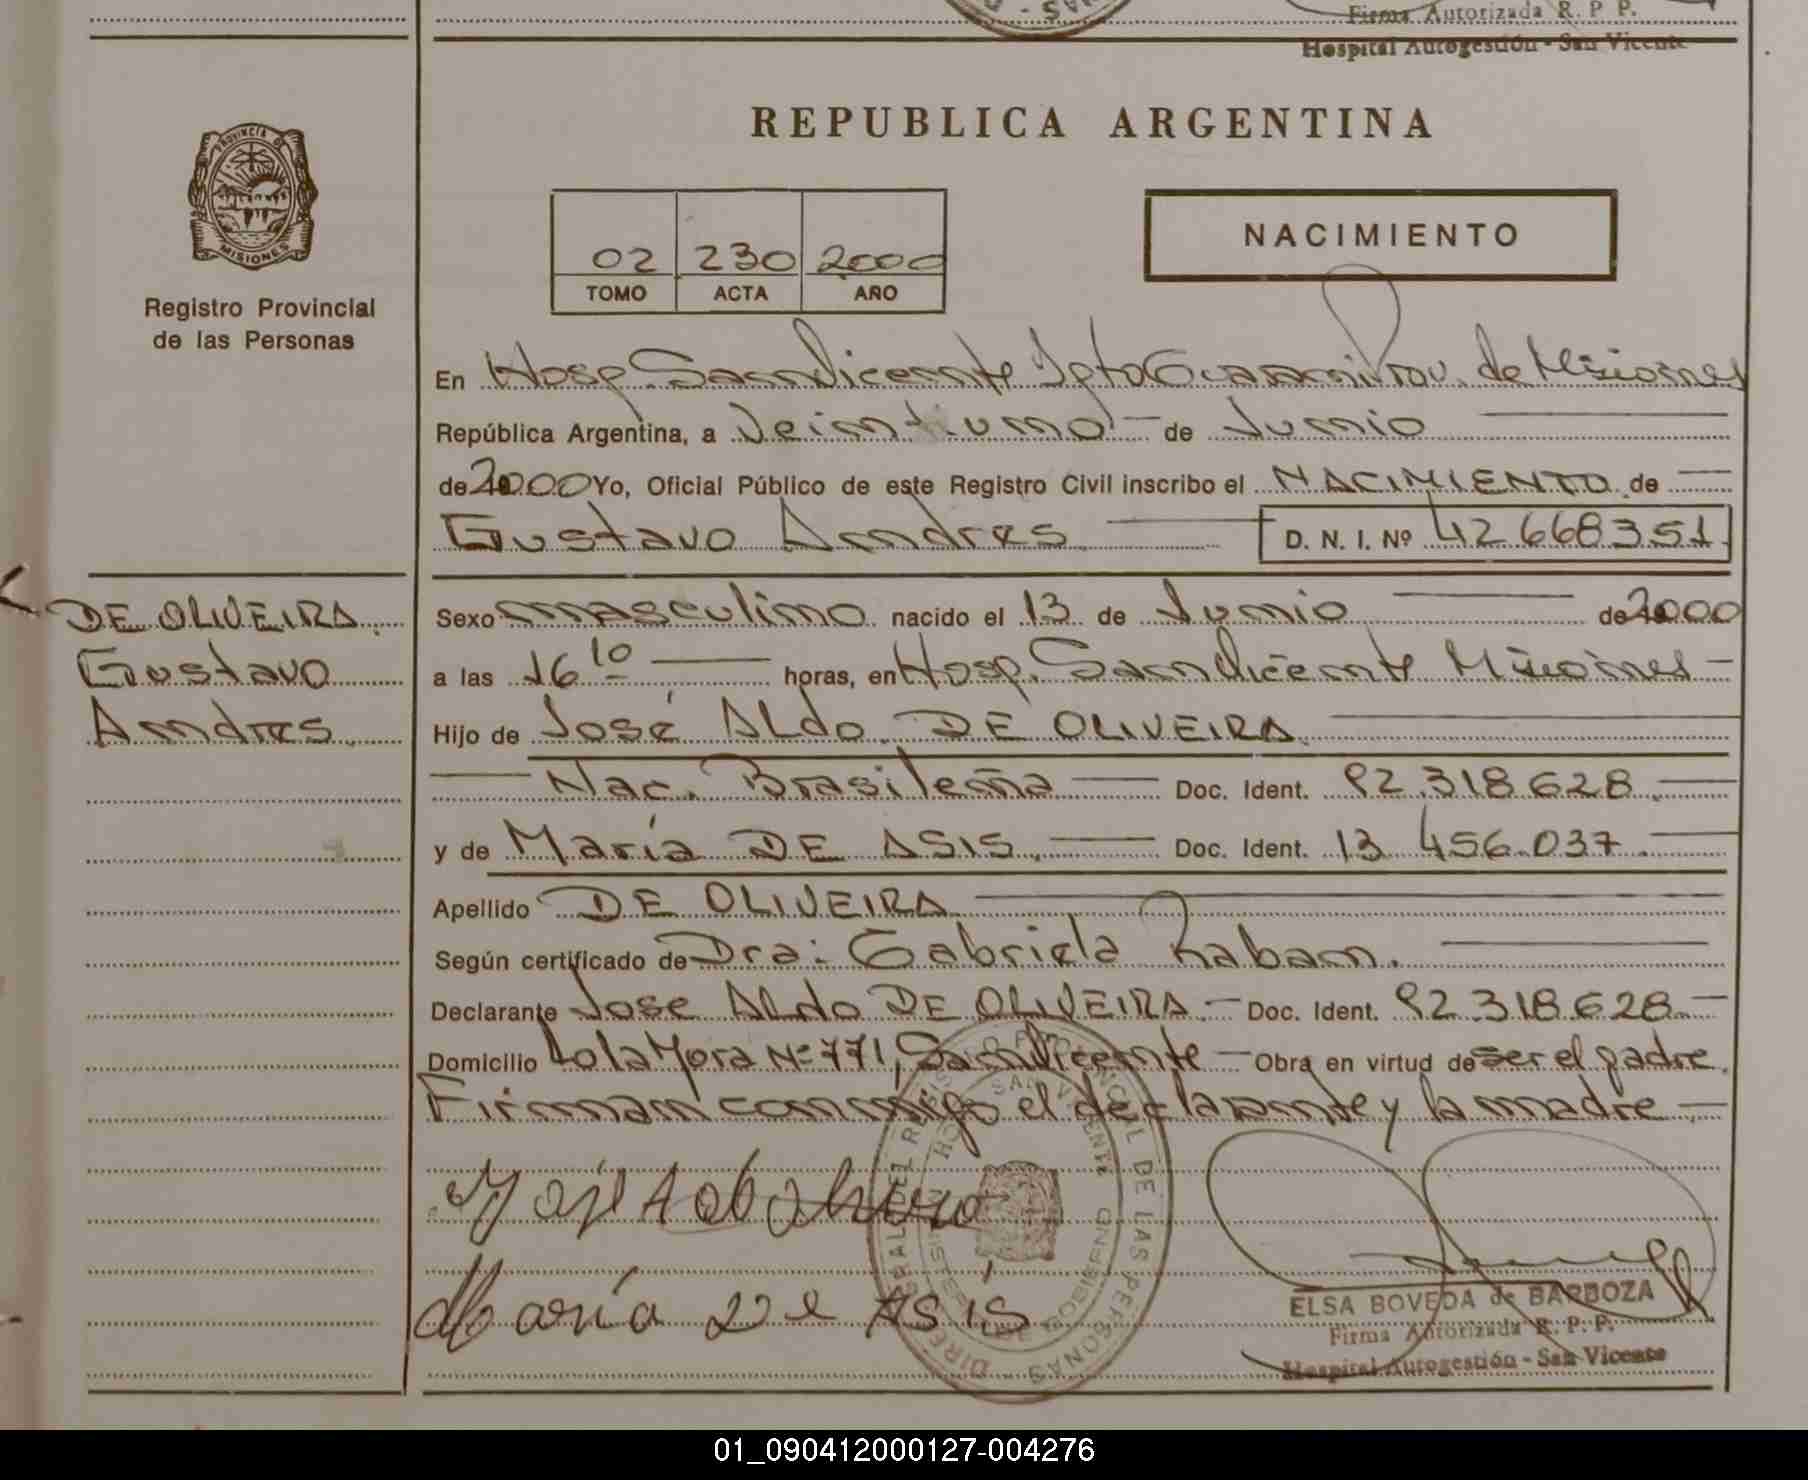 Firma Autorizada R. P P.
Hospital Autogestión - San Vicente
PROVINCIA
MISIONES
Registro Provincial
de las Personas
REPUBLICA ARGENTINA
02 230 2000
TOMO ACTA AÑO
NACIMIENTO
En Hosp. San Vicente Dpto Guarani Prov. de Misiones
República Argentina, a Veintiuno de Junio
de 2000 Yo, Oficial Público de este Registro Civil inscribo el NACIMIENTO de
Gustavo Andres D. N. I. Nº 42 668 351
DE OLIVEIRA
Gustavo
Andres
Sexo masculino nacido el 13 de Junio de 2000
a las 16 10 horas, en Hosp. San Vicente Misiones
Hijo de José ALdo DE OLIVEIRA
Nac. Brasileña Doc. Ident. 92.318.628
y de María DE ASIS Doc. Ident. 13 456.037
Apellido DE OLIVEIRA
Según certificado de Dra: Gabriela Raban.
Declarante Jose ALdo DE OLIVEIRA Doc. Ident. 92.318.628
Domicilio Lola Mora Nº 771, San Vicente Obra en virtud de ser el padre
Firman conmigo el declarante y la madre
María De Asís
ELSA BOVEDA de BARBOZA
Firma Autorizada R. P. P.
Hospital Autogestión - San Vicente
01_090412000127-004276